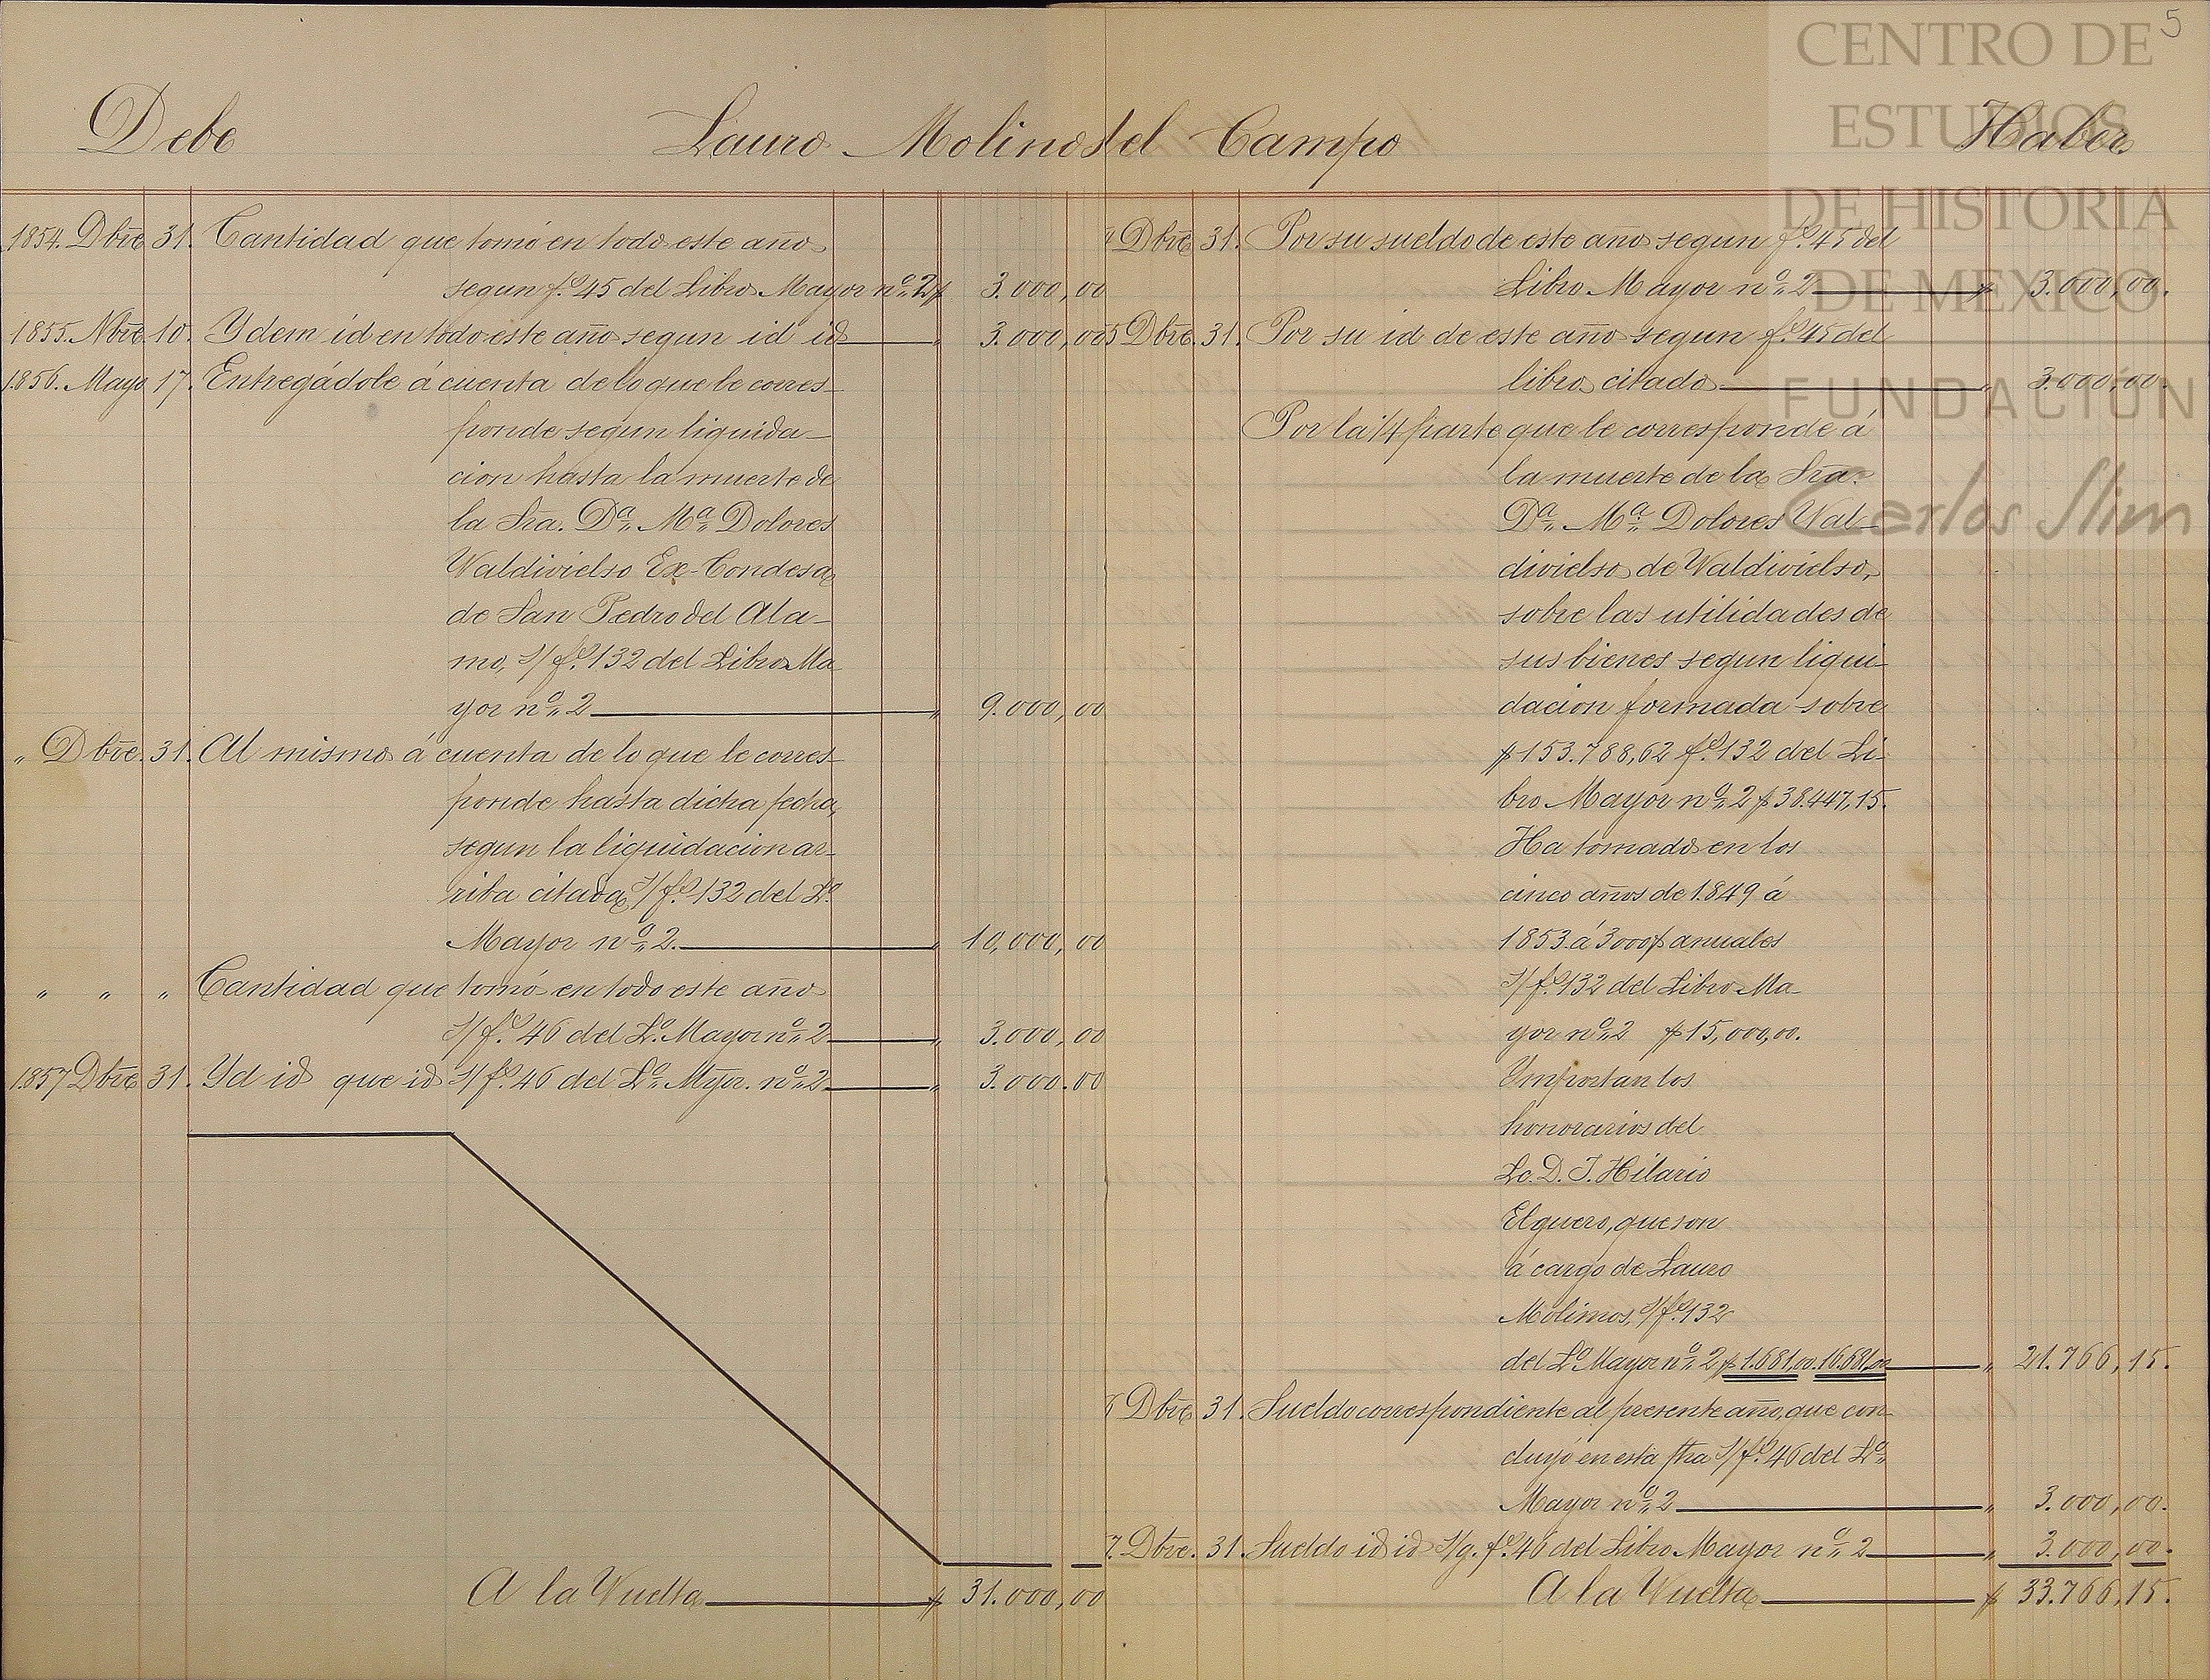 5
Debe Lauro Molinos del Campo Haber
1854. Dbre 31. Cantidad que tomó en todo este año
segun fo. 45 del Libro Mayor no. 2 $ 3.000,00
1855. Nbre. 10. Ydem id en todo este año segun id id „ 3.000,00
1856. Mayo 17. Entregádole á cuenta de lo que le corres-
ponde segun liquida-
cion hasta la muerte de
la Sra. Da. Ma. Dolores
Valdivielso Ex-Condesa
de San Pedro del Ala-
mo, S/ fo. 132 del Libro Ma
yor no. 2 „ 9.000,00
„ Dbre. 31. Al mismo á cuenta de lo que le corres-
ponde hasta dicha fecha,
segun la liquidacion ar-
riba citada S/ fo. 132 del Lo.
Mayor no. 2. „ 10,000,00
„ „ „ Cantidad que tomó en todo este año
S/ fo. 46 del Lo. Mayor no. 2 „ 3.000,00
1857 Dbre 31. Yd id que id S/ fo. 46 del Lo. Myor. no. 2 „ 3.000.00
A la Vuelta $ 31.000,00
Dbre 31. Por su sueldo de este año segun fo. 45 del
Libro Mayor no. 2 $ 3.000,00.
5 Dbre. 31. Por su id de este año segun fo. 45 del
libro citado „ 3.000,00.
Por la 1/4 parte que le corresponde á
la muerte de la Sra.
Da. Ma. Dolores Val-
divielso de Valdivielso,
sobre las utilidades de
sus bienes segun liqui-
dacion formada sobre
$153.788,62 fo. 132 del Li-
bro Mayor no. 2 $38.447,15.
Ha tomado en los
cinco años de 1849 á
1853 á 3000$ anuales
S/ fo. 132 del Libro Ma-
yor no. 2 $15,000,00.
Ymportan los
honorarios del
Lo. D. J. Hilario
Elguero, que son
á cargo de Lauro
Molinos, S/ fo. 132
del Lo. Mayor no. 2 $1.681,00. 16.681,00 „ 21.766,15.
6 Dbre 31. Sueldo correspondiente al presente año, que con-
cluyó en esta fha S/ fo. 46 del Lo.
Mayor no. 2 „ 3.000,00.
7. Dbre. 31. Sueldo id id S/g. fo. 46 del Libro Mayor no. 2 „ 3.000,00.
A la Vuelta $ 33.766,15.
CENTRO DE
ESTUDIOS
DE HISTORIA
DE MEXICO
FUNDACIÓN
Carlos Slim